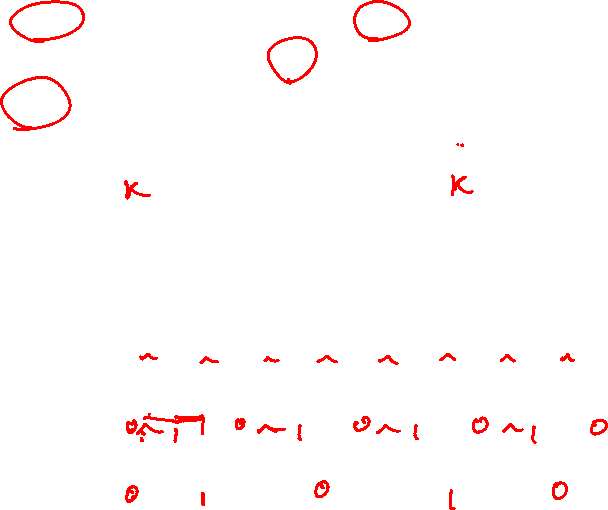 K K
^ ^ ^ ^ ^ ^ ^ ^
0 ~ 1 1 0 ~ 1 0 ~ 1 0 ~ 1 0
0 1 0 1 0